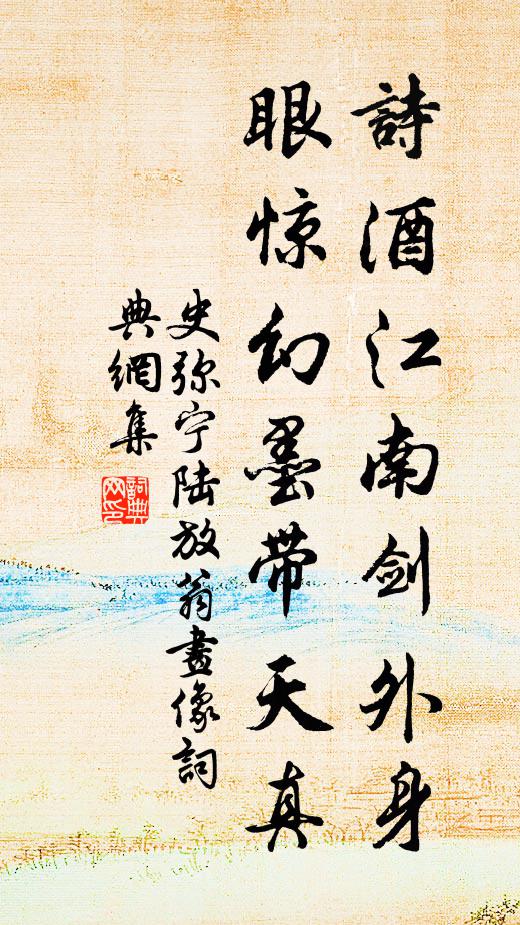 詩酒江南剑外身
眼惊幻墨带天真
史弥宁陆放翁畫像詞
典網集
詞典网印